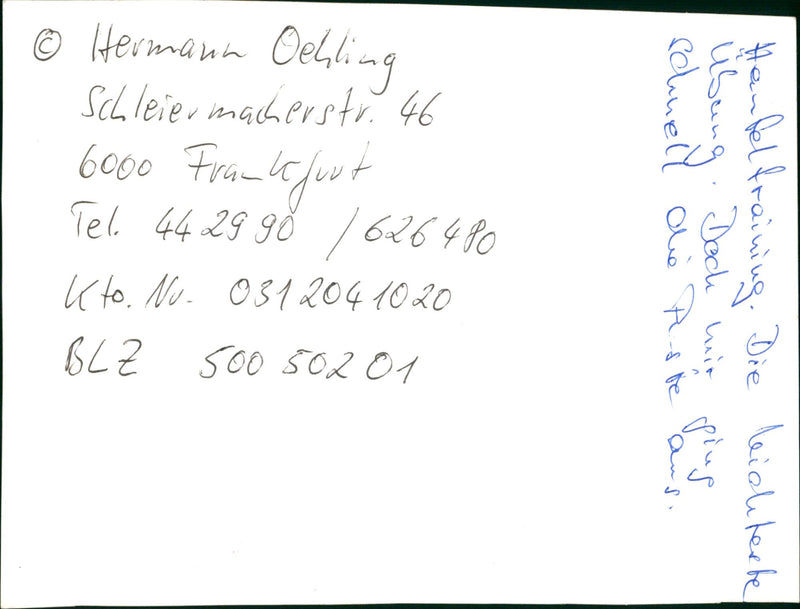 © Hermann Oehling
Schleiermacherstr. 46
6000 Frankfurt
Tel. 44 29 90 / 626 480
Kto. Nr. 031 204 1020
BLZ 500 502 01
Hanteltraining. Die leichteste
Übung. Doch mir ging
schnell die Puste aus.